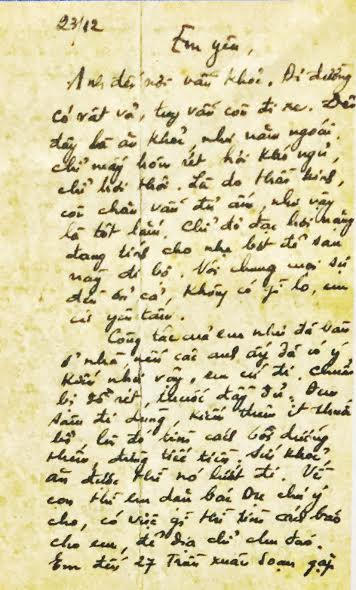 23/12
Em yêu,
Anh đến nơi vẫn khỏe. Đi đường
có vất vả, tuy vẫn còn đi xe. Đến
đây là ăn khỏe, như năm ngoái.
chỉ mấy hôm rét hơi khó ngủ,
chỉ hơi thôi. Là do thần kinh,
còn chân vẫn đi ấn, như vậy
là tốt lắm. Chỉ đồ đạc hơi nặng
đang tính cho nhẹ bớt để sau
này đi bộ. Nói chung mọi sự
đều ổn cả, không có gì lo, em
cứ yên tâm.
Công tác của em như đã bàn
ở nhà, nếu các anh ấy đã có ý
kiến như vậy, em cứ đi. Chuẩn
bị đồ rét, thuốc đầy đủ. Đem
sâm đi dùng, kiếm thêm ít thuốc
bổ, lúc đó tìm cách bồi dưỡng
thêm, đừng tiếc tiền. Sức khỏe
ăn được thì nó bớt đi. Về
con thì em dặn bác Dre chú ý
cho, có việc gì thì tìm cách báo
cho em, để địa chỉ chu đáo.
Em đến 27 Trần Xuân Soạn gặp